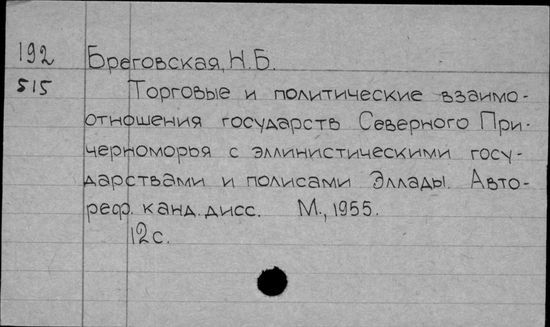 192 Бреговская, Н.Б.
515 Торговые и политические взаимо-
отношения государств Северного При-
черноморья с эллинистическими госу-
дарствами и полисами Эллады. Авто-
реф. канд. дисс. М., 1955.
12 с.